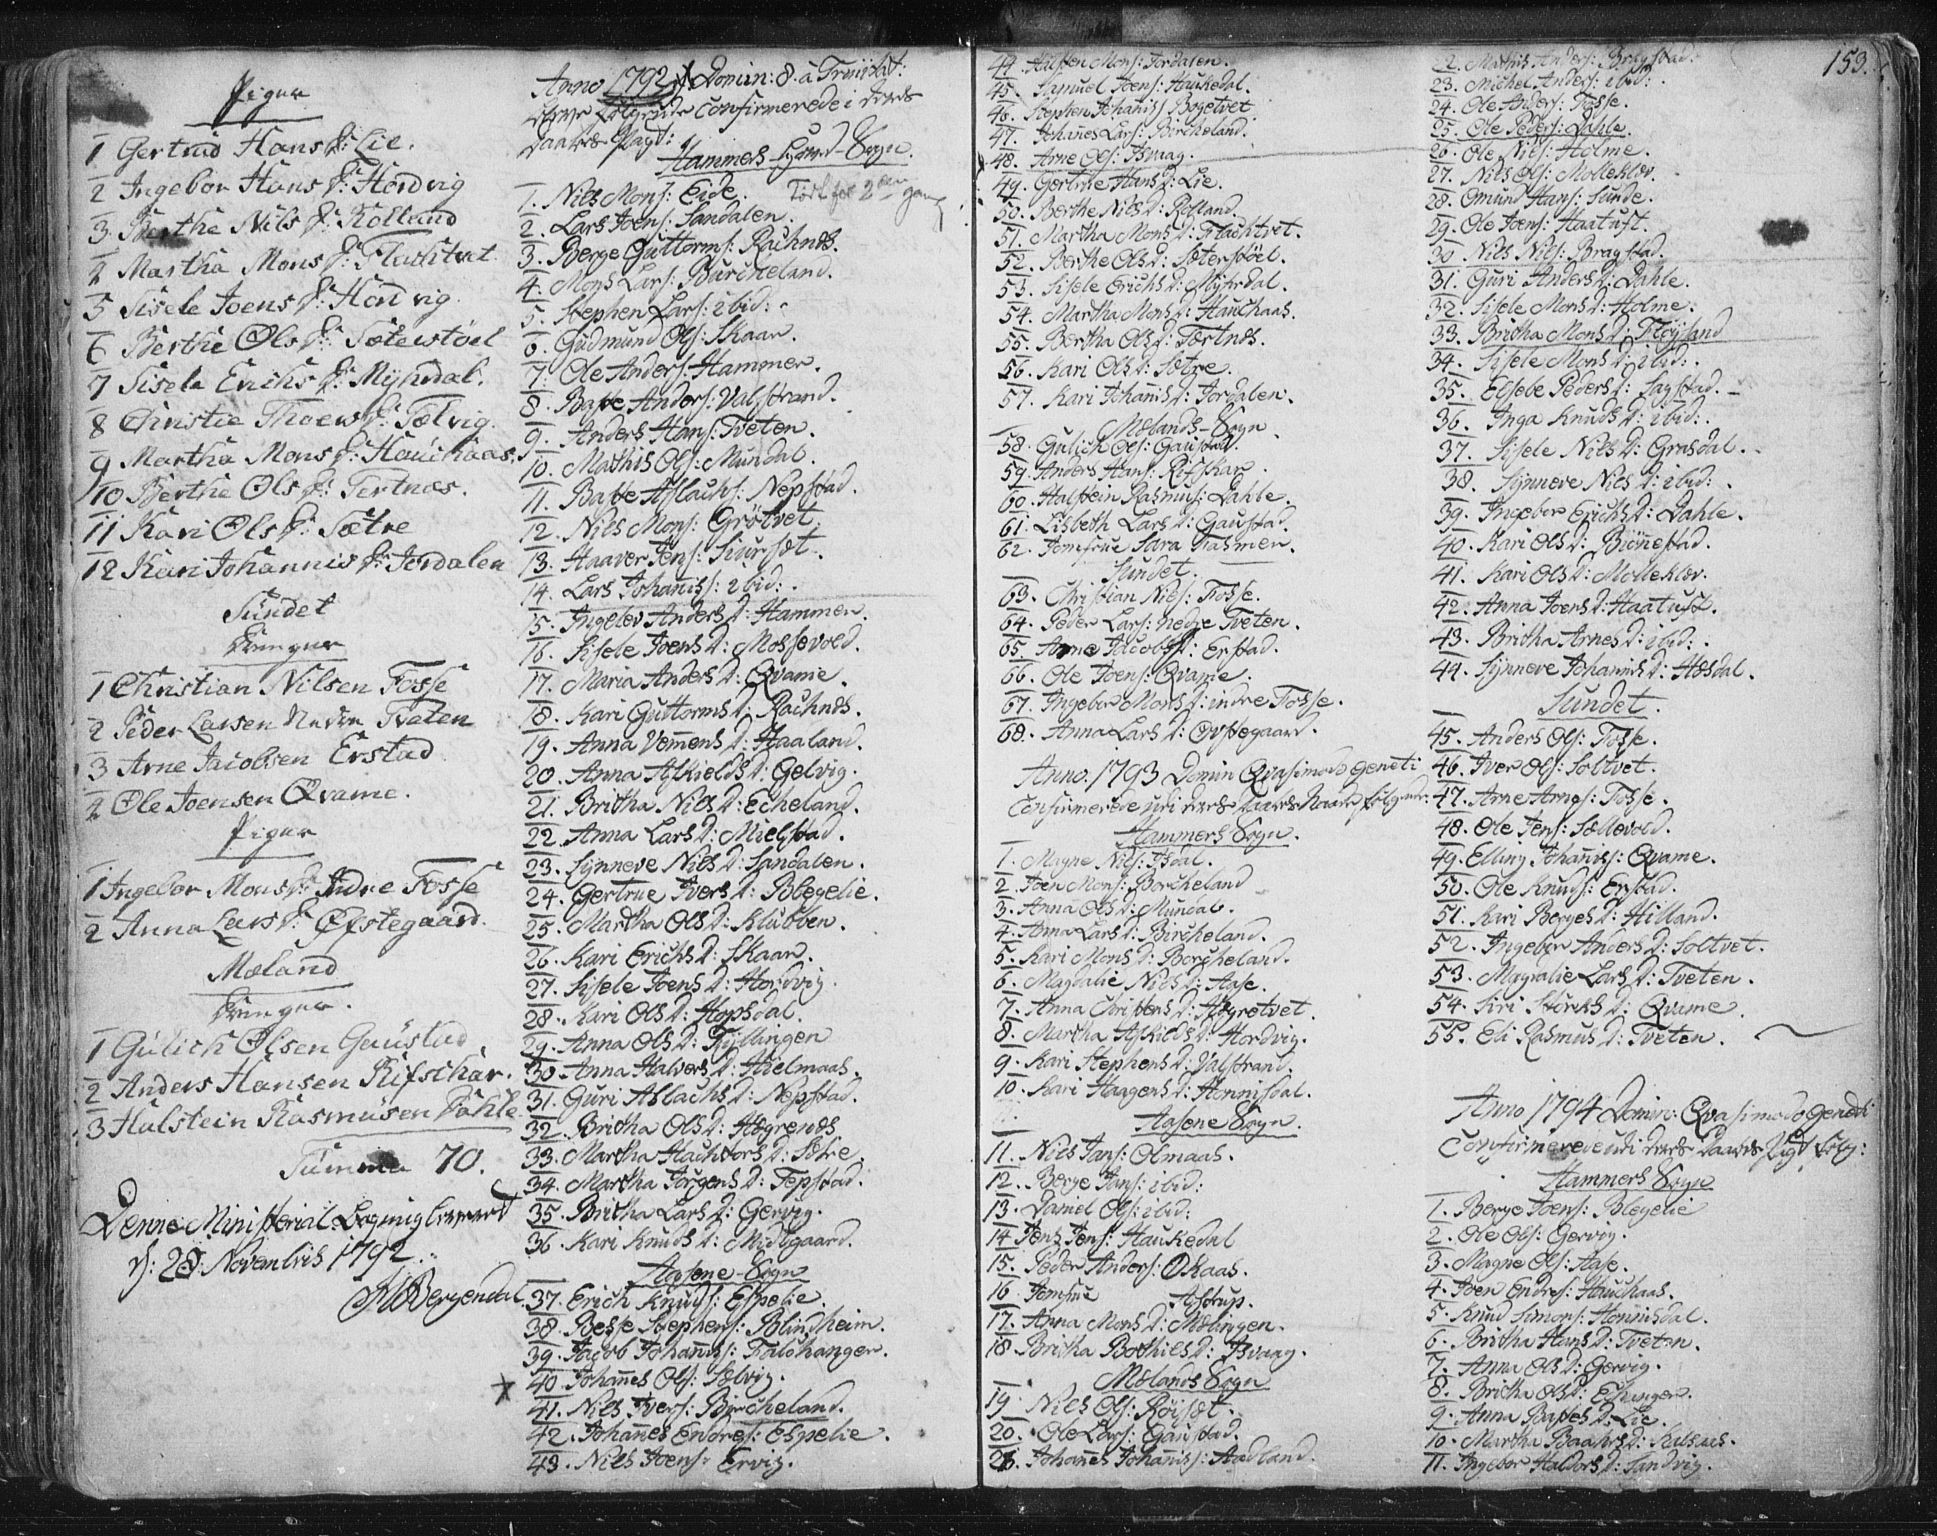 Piger
1 Gertrud Hans D: Lie.
2 Ingebor Hans D: Hordvig
3. Berthe Nils D: Rolland
4 Martha Mons D: Flachtvet
5 Sisele Joens D: Hordvig
6 Berthe Ols D: Sæterstöel
7 Sisele Erichs D: Myhrdal.
8 Christie D: Sælvig.
9 Martha Mons D: Hauchaas.
10 Berthe Ols D: Tertnæs.
11 Kari Ols D: Sætre
12 Kari Johannis D: Jordalen
Sundet
Drenger
1 Christian Nilsen Fosse
2 Peder Larsen Nedre Tveten
3 Arne Jacobsen Erstad
4 Ole Joensen Qvame.
Piger
1 Ingebor Mons D: Indre Fosse
2 Anna Lars D: Øfstegaard.
Mæland
Drenger.
1 Gulich Olsen Gaustad.
2 Anders Hansen Rifschar.
3 Halstein Rasmusen Dahle
Summa 70.
Denne Ministerial Bog
d: 28 Novembris 1792.
Bergendal.
Anno 1792 Domin: 8. a Trinitat:
ere følgende Confirmerede i deres
Daabs Pagt:
Hammers Sogn.
1. Nils Mons: Eide. for 2den gang
2. Lars Joens: Sandalen.
3. Berge Guttorms: Rachnes.
4. Mons Lars: Burcheland.
5. Stephen Lars: ibid:
6. Gudmund Ols: Skaar.
7. Ole Anders: Hammer.
8. Basse Anders: Valstrand.
9. Anders Hans: Tveten.
10. Mathis Ols: Mundal.
11. Basse Aslachs: Nepstad.
12. Nils Mons: Grötvet.
13. Haaver Jens: Siursæt.
14. Lars Johannis: ibid:
15. Ingelev Anders D: Hammer.
16. Sisele Joens D: Mossevold.
17. Maria Anders D: Qvame.
18. Kari Guttorms D: Rachnes.
19. Anna Vemens D: Haaland.
20. Anna Askields D: Gelvig.
21. Britha Nils D: Echeland.
22. Anna Lars D: Mielstad.
23. Synneve Nils D: Sandalen.
24. Gertrue Ivers D: Blegelie.
25. Martha Ols D: Klubben.
26. Kari Erichs D: Skaar.
27. Sisele Joens D: Hordvig.
28. Kari Ols D: Hopsdal.
29. Anna Ols D: Kyllingen
30. Anna Halvors D: Hielmaas.
31. Guri Aslachs D: Nepstad.
32. Britha Ols D: Høgrenes
33. Martha Hachtors D: Sætre.
34. Martha Jørgens D: Tepstad.
35. Britha Lars D: Gervig.
36. Kari Knuds D: Midtgaard.
Aasene-Sogn
37. Erich Knuds: Espelie.
38. Besse Stephens: Blindheim.
39. Jacob Johannis: Falchanger.
40. Johannes Ols: Sælvig.
41. Nils Ivers: Burcheland.
42. Johannes Endres: Espelie.
43. Nils Joens: Ervig.
44. Halsten Mons: Jordalen.
45. Samuel Joens: Haukedal.
46. Stephen Johanis: Bogetvet.
47. Johanes Lars: Bircheland.
48. Arne Ols: Isvaag.
49. Gertrue Hans D: Lie.
50. Berthe Nils D: Rolland.
51. Martha Mons D: Flachtvet.
52. Berthe Ols D: Sæterstöel.
53. Sisele Erichs D: Myhrdal.
54. Martha Mons D: Hauchaas.
55. Bertha Ols D: Tærtnes.
56. Kari Ols D: Sætre.
57. Kari Johanis D: Jordalen.
Mælands-Sogn
58. Gulich Ols: Gaustad.
59. Anders Hans: Rifskar.
60. Halstein Rasmus: Dahle.
61. Lisbeth Lars D: Gaustad.
62. Jomfrue Sara Fasmer.
Sundet.
63. Christian Nils: Fosse.
64. Peder Lars: nedre Tveten.
65. Arne Jacobs: Erstad.
66. Ole Joens: Qvame.
67. Ingebor Mons D: indre Fosse.
68. Anna Lars D: Øvstegaard.
Anno. 1793 Domin Qvasimodo geneti:
Confirmerede udi deres Daabs Naade følgende:
Hammers Sogn.
1. Magne Nils: Isdal.
2. Joen Mons: Borcheland
3. Anna Ols D: Mundal.
4. Anna Lars D: Bircheland.
5. Kari Mons D: Borcheland.
6. Magdalie Nils D: Aase.
7. Anna Christens D: Høgretvet.
8. Martha Askilds D: Hordvig.
9. Kari Stephens D: Valstrand.
10. Kari Haagens D: Honnisdal.
Aasene Sogn.
11. Nils Jans: Olmaas.
12. Berge Jans: ibid:
13. Daniel Ols: ibid:
14. Jens Jens: Haukedal
15. Peder Anders: Okaas.
16. Jomfrue Astrup.
17. Anna Mons D: Mælingen.
18. Britha Bothils D: Isvaag.
Mælands Sogn
19. Nils Ols: Röisæt.
20. Ole Lars: Gaustad.
21. Johanes Johanis: Aadland.
153.
22. Mathis Anders: Bragstad:
23. Michel Anders: ibid:
24. Ole Anders: Fosse.
25. Ole Peders: Dahle.
26. Ole Nils: Holme.
27. Nils Ols: Molleklev.
28. Omund Hans: Sunde.
29. Ole Joens: Haatuft.
30. Nils Nils: Bragstad.
31. Guri Anders D: Dahle.
32. Sisele Mons D: Holme.
33. Britha Mons D: Flöysand
34. Sisele Mons D: ibid:
35. Elsebe Peders D: Sagstad.
36. Inga Knuds D: ibid:
37. Sisele Nils D: Gresdal.
38. Synneve Nils D: ibid:
39. Ingebor Erichs D: Dahle.
40. Kari Ols D: Biönnestad.
41. Kari Ols D: Molleklev.
42. Anna Joens D: Haatuft.
43. Britha Arnes D: ibid:
44. Synneve Johannis D: Hæsdal.
Sundet.
45. Anders Ols: Fosse.
46. Iver Ols: Soltvet.
47. Arne Arnes: Fosse.
48. Ole Jens: Sællevold.
49. Elling Johannis: Qvame.
50. Ole Knuds: Erstad.
51. Kari Berges D: Hilland.
52. Ingebor Anders D: Soltvet.
53. Magdalie Lars D: Tveten.
54. Siri Stürcks D: Qvame.
55. Eli Rasmus D: Tveten.
Anno 1794 Domin: Qvasimodo geneti
Confirmerede udi deres Daabs Pagt følg:
Hammers Sogn
1. Berge Joens: Blegelie
2. Ole Ols: Gervig.
3. Magne Ols: Aase.
4. Joen Endres: Hauchaas.
5. Knud Simons: Honnisdal.
6. Britha Hans D: Tveten.
7. Anna Ols D: Gervig.
8. Britha Ols D: Echanger.
9. Anna Basses D: Lie.
10. Martha Baahrs D: Kilsaas.
11. Ingebor Haldors D: Sandvig.